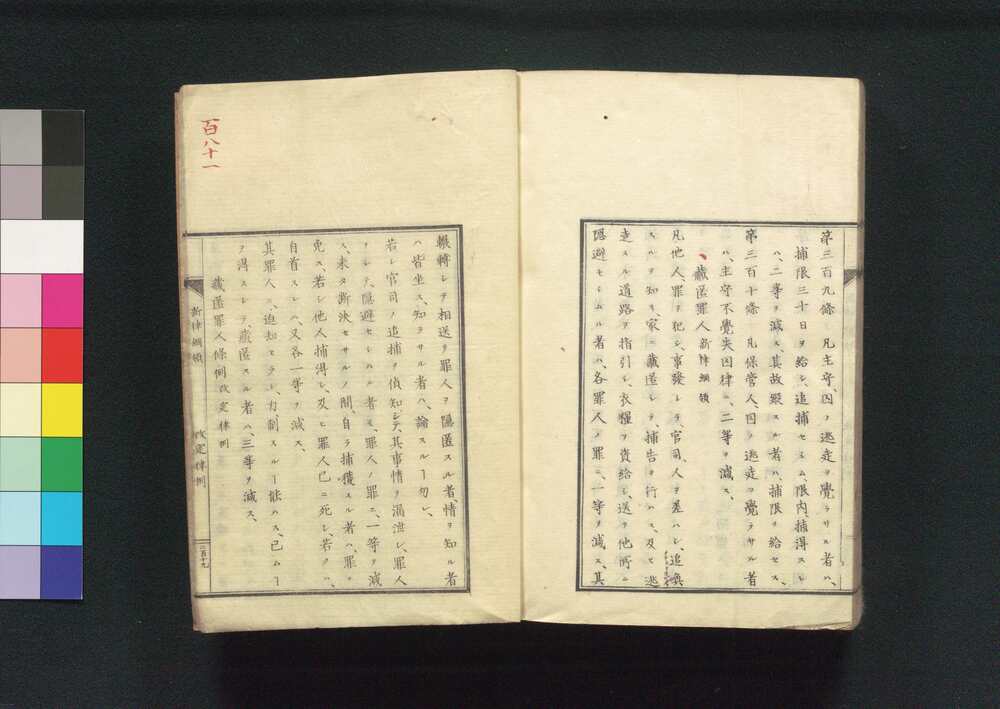 第三百九條 凡主守、囚ノ逃走ヲ覺ラサル者ハ、
捕限三十日ヲ給シ、追捕セシム、限内、捕得スレ
ハ、二等ヲ減ス其故縱スル者ハ、捕限ヲ給セス、
第三百十條 凡保管人囚ノ逃走ヲ覺ラサル者
ハ、主守不覺失囚律ニ、二等ヲ減ス、
藏匿罪人 新律綱領
凡他人罪ヲ犯シ、事發シテ、官司、人ヲ差ハシ、追喚
スルヲ知リ、家ニ藏匿シテ、捕告ヲ行ハス、及ヒ逃
走スル道路ヲ指引シ、衣糧ヲ資給シ、送ヲ他所ニ
隱避セシムル者ハ、各罪人ノ罪ニ、一等ヲ減ス、其
輾轉シテ相送リ罪人ヲ隱匿スル者、情ヲ知ル者
ハ皆坐ス、知ラサル者ハ、論スルヿ勿レ、
若シ官司ノ追捕ヲ偵知シテ、其事情ヲ漏泄シ、罪人
ヲシテ、隱避セシムル者モ、罪人ノ罪ニ、一等ヲ減
ス、未タ斷決セサルノ間、自ラ捕獲スル者ハ、罪ヲ
免ス、若シ他人捕得シ、及ヒ罪人已ニ死シ、若クハ、
自首スレハ、又各一等ヲ減ス、
其罪人ニ、迫劫セラレ、力制スルヿ能ハス、已ムヿ
ヲ得スシテ、藏匿スル者ハ、三等ヲ減ス、
藏匿罪人條例 改定律例
新律綱領 改定律例
二百十九
百八十一